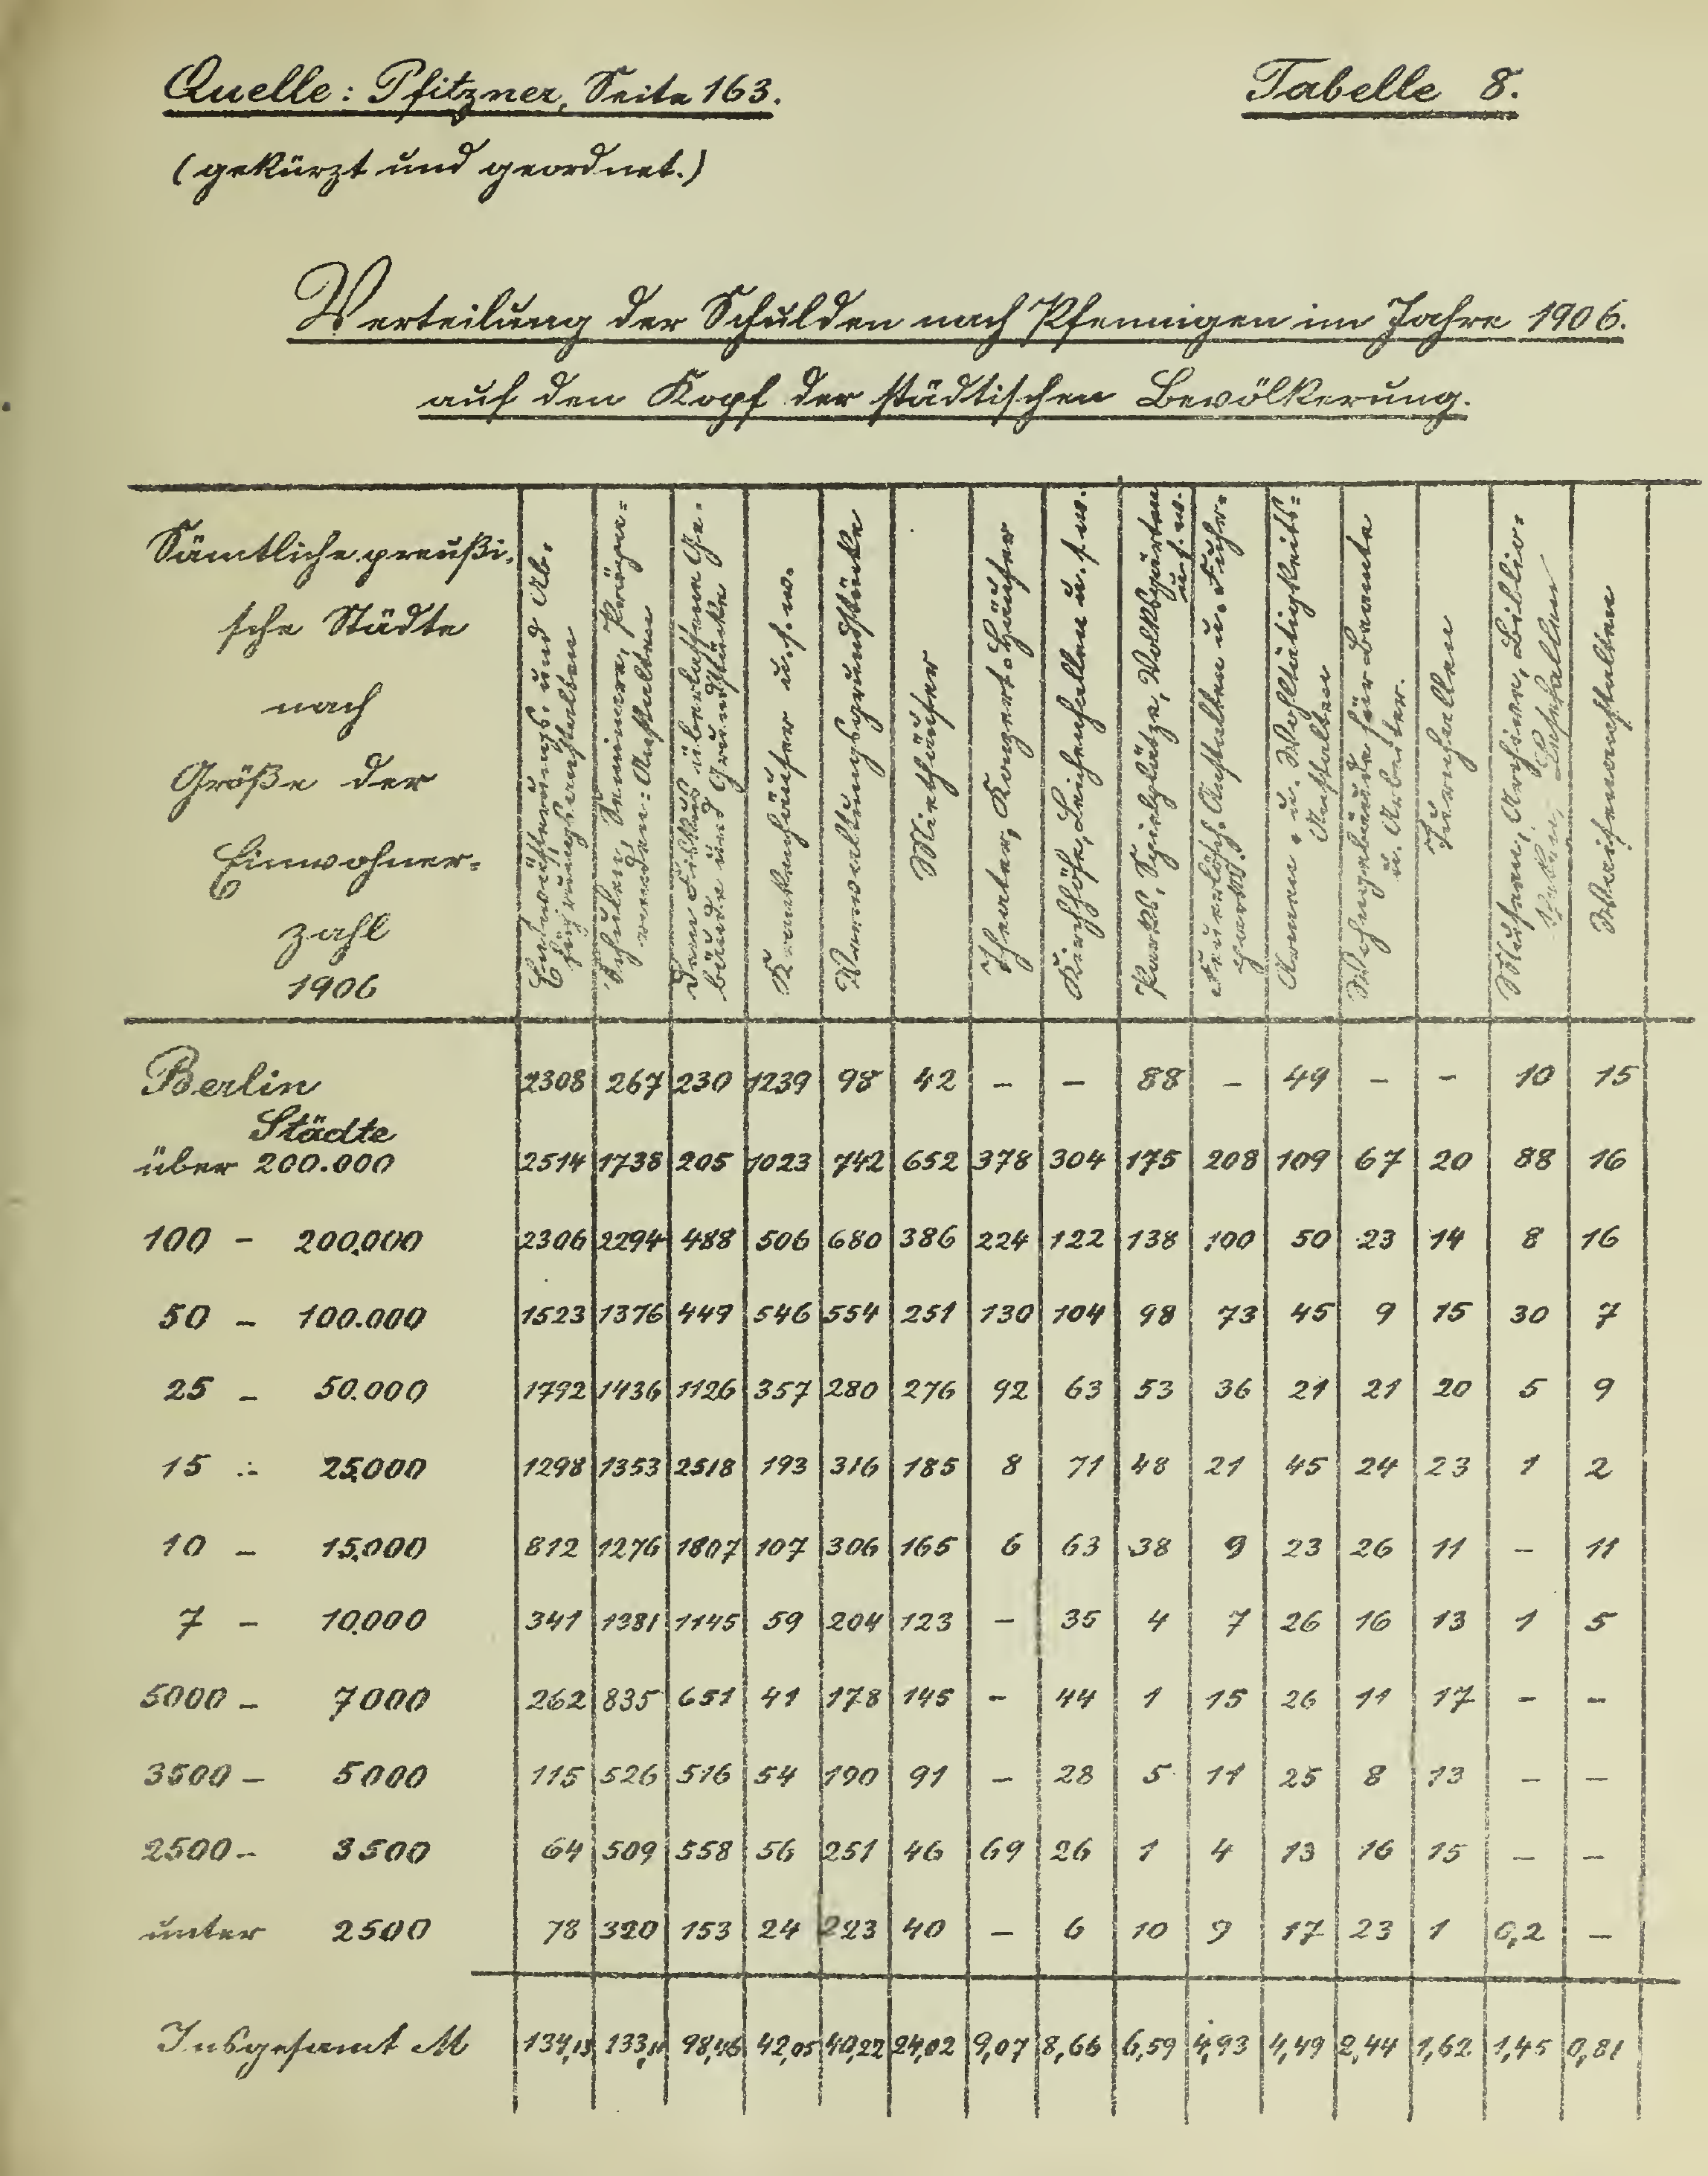 Quelle: Pfitzner, Seite 163.
Tabelle 8.
(gekürzt und geordnet.)
Verteilung der Schulden nach Pfennigen im Jahre 1906.
auf den Kopf der städtischen Bevölkerung.
Sämtliche preußi-
sche Städte
nach
Größe der
Einwohner-
zahl
1906
Entwässerungs- und Ab-
fuhranstalten
Schulen, Seminare, Präpa-
randen-Anstalten
Dem Fiskus überlassene Ge-
bäude und Grundstücke
Krankenhäuser u.s.w.
Verwaltungsgrundstücke
Miethäuser
Theater, Konzert-Häuser
Kirchhöfe, Leichenhallen u.s.w.
Parks, Spielplätze, Volksgärten
u.s.w.
Feuerlösch-Anstalten u. Fuhr-
park
Armen- u. Wohltätigkeits-
Anstalten
Wohngebäude für Beamte
u. Arbeiter.
Turnhallen
Museen, Archive, Biblio-
Lesehallen
Waisenanstalten
Berlin 2308 267 230 1239 98 42 – – 88 – 49 – – 10 15
Städte
über 200.000 2514 1738 205 1023 742 652 378 304 175 208 109 67 20 88 16
100 – 200,000 2306 2294 488 506 680 386 224 122 138 100 50 23 14 8 16
50 – 100.000 1523 1376 449 546 554 251 130 104 98 73 45 9 15 30 7
25 – 50.000 1792 1436 1126 357 280 276 92 63 53 36 21 21 20 5 9
15 – 25,000 1298 1353 2518 193 316 185 8 71 48 21 45 24 23 1 2
10 – 15,000 812 1276 1807 107 306 165 6 63 38 9 23 26 11 – 11
7 – 10,000 341 1381 1145 59 204 123 – 35 4 7 26 16 13 1 5
5000 – 7000 262 835 651 41 178 145 – 44 1 15 26 11 17 – –
3500 – 5000 115 526 516 54 190 91 – 28 5 11 25 8 13 – –
2500 – 3500 64 509 558 56 251 46 69 26 1 4 13 16 15 – –
unter 2500 78 320 153 24 223 40 – 6 10 9 17 23 1 0,2 –
Insgesamt M 134,13 133,11 98,46 42,05 40,22 24,02 9,07 8,66 6,59 4,93 4,49 2,44 1,62 1,45 0,81